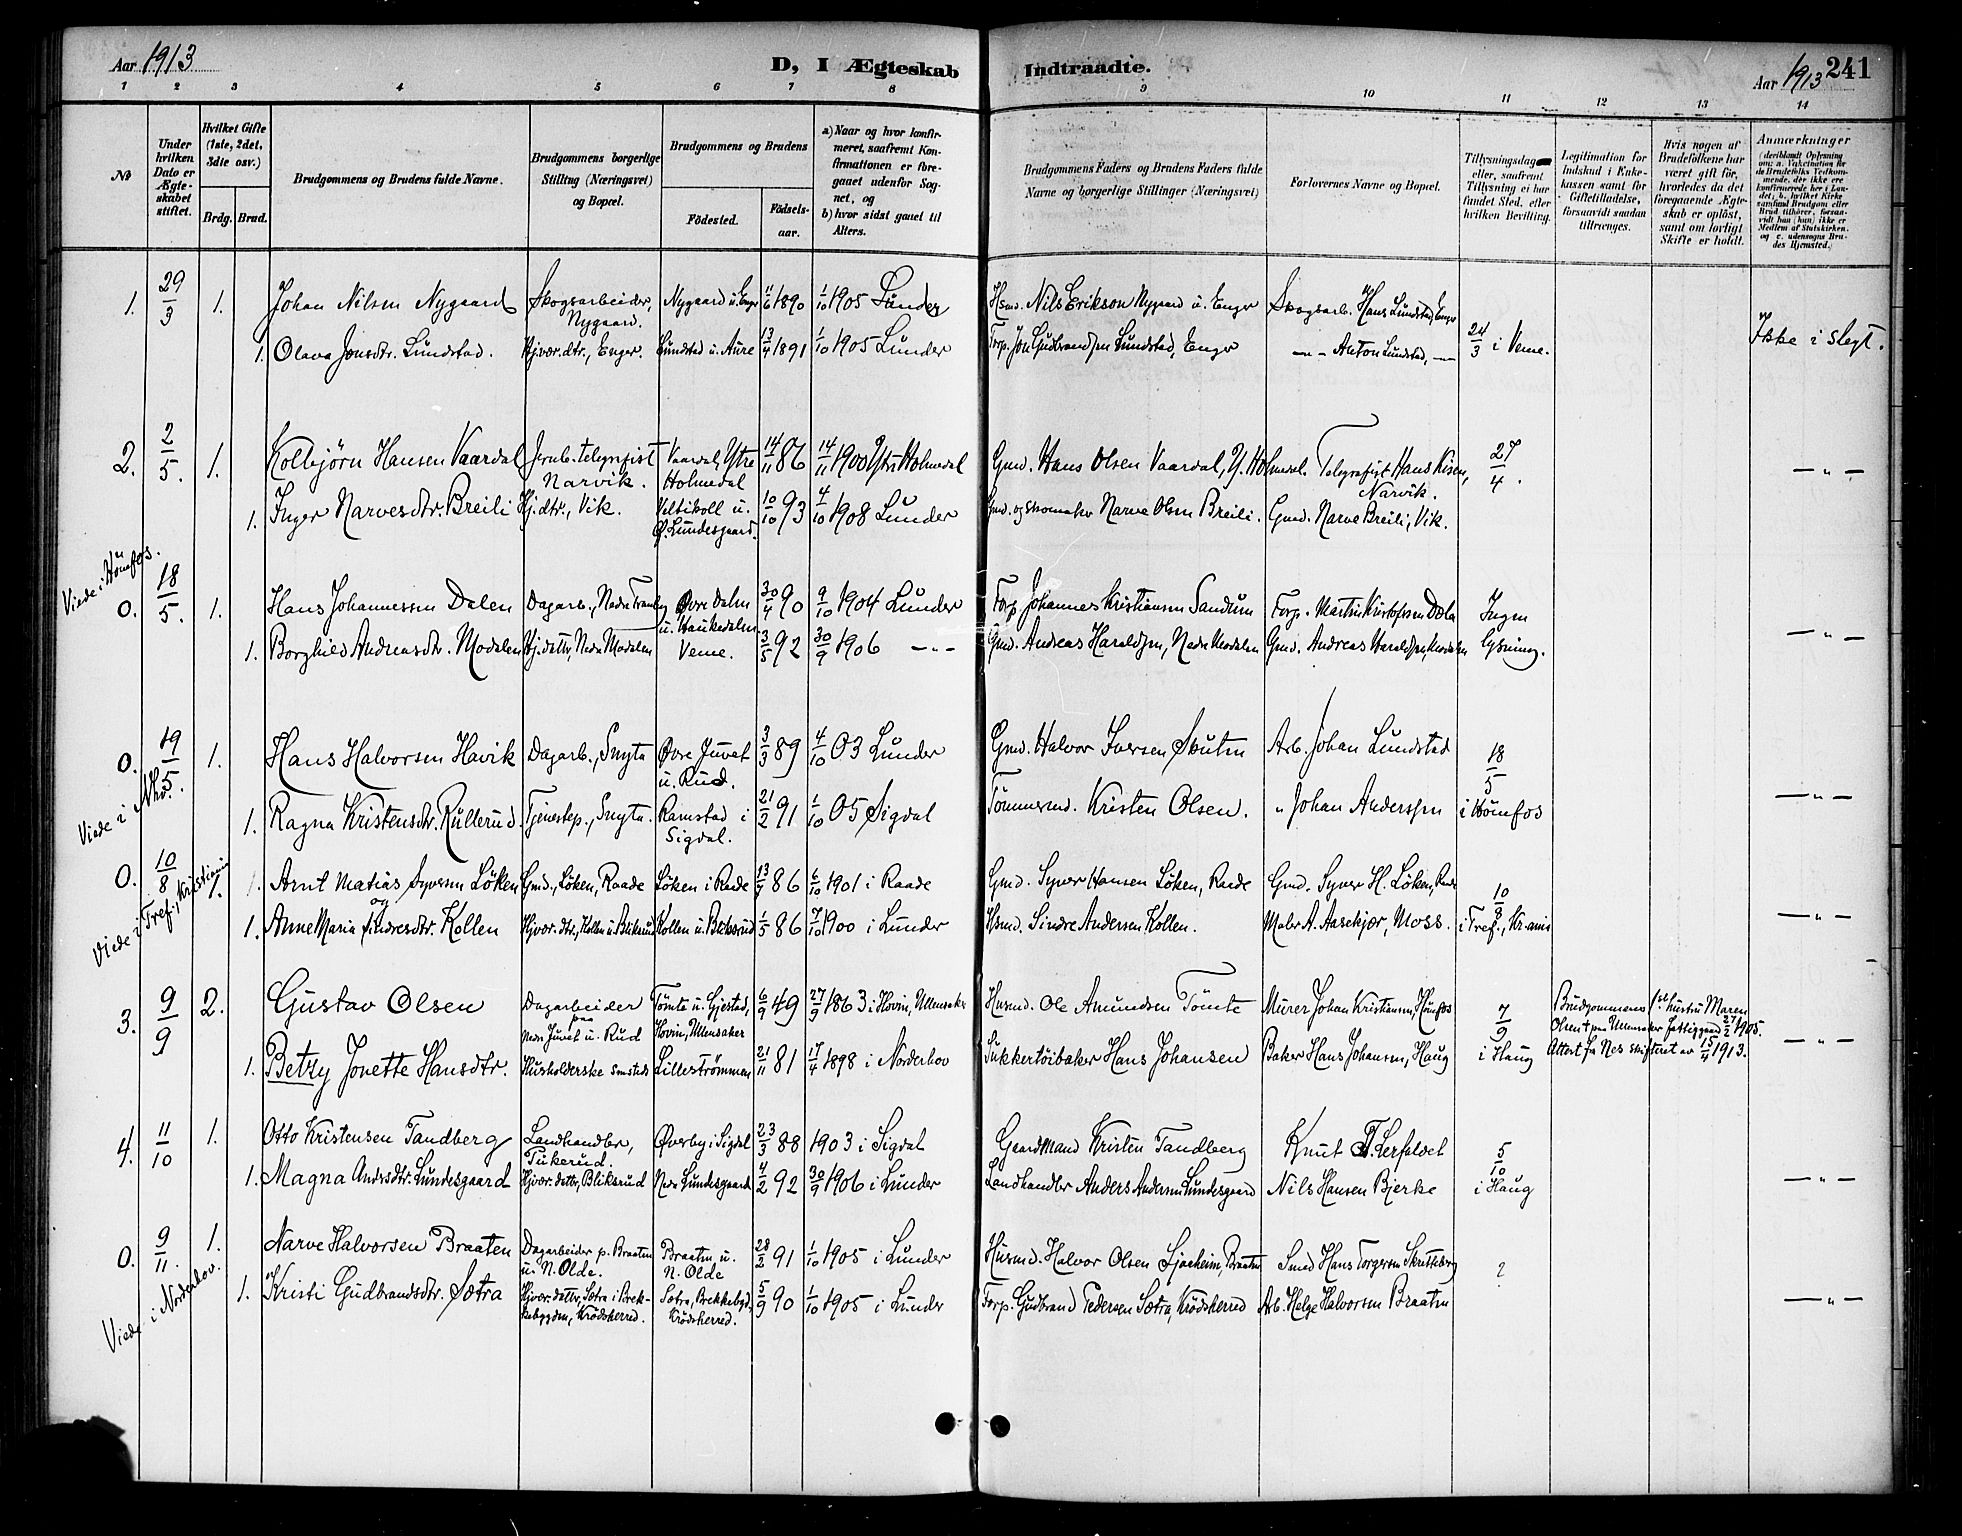 Aar 1913
D, I Ægteskab
Indtraadte.
Aar 1913
241
1 2 3 4 5 6 7 8 9 10 11 12 13 14
No
Under hvilken Dato er Ægteskabet stiftet.
Hvilket Gifte (1ste, 2det, 3die osv.)
Brdg. Brud.
Brudgommens og Brudens fulde Navne.
Brudgommens borgerlige Stilling (Næringsvei) og Bopæl.
Brudgommens og Brudens
Födested.
Födsels-aar.
a) Naar og hvor konfirmeret, saafremt Konfirmationen er foregaaet udenfor Sognet, og
b) hvor sidst gaaet til Alters.
Brudgommens Faders og Brudens Faders fulde Navne og borgerlige Stillinger (Næringsvei)
Forlovernes Navne og Bopæl.
Tillysningsdag eller, saafremt Tillysning ei har fundet Sted, efter hvilken Bevilling.
Legitimation for Indskud i Enkekassen samt for Giftetilladelse, forsaavidt saadan tiltrænges.
Hvis nogen af Brudefolkene har været gift før, hvorledes da det foregaaende Ægteskab er oplöst, samt om lovligt Skifte er holdt.
Anmærkninger
1. 29/3 1. Johan Nilsen Nygaard Skogsarbeider, Nygaard. Nygaard u. Enger 1/6 1890 1/10 1905 Lunder Hsmd. Nils Erikson Nygaard u. Enger Skogsarb. Hans Lundstad, Enger
1. Olava Jonsdtr. Lundstad. Hjvær. dtr., Enger. Lundstad u. Aure 13/4 1891 1/10 1905 Lunder Torp. Jon Gudbrandsen Lundstad, Enger —"— Anton Lundstad, —"— 24/3 i Veme. Ikke i slegt.
2. 2/5. 1. Kolbjörn Hansen Vaardal Jernb. telegrafist Narvik. Vaardal, Ytre Holmedal 14/11 86 14/11 1900 Ytre Holmedal Gmd. Hans Olsen Vaardal, Y. Holmedal. Telegrafist Hans Kisen, Narvik. 27/4. —"—
1. Inger Narvesdtr. Breili Hj. dtr., Vik. Veltikoll u. Ø. Lundesgaard. 10/10 93 4/10 1908 Lunder Gmd. og skomaker Narve Olsen Breili. Gmd. Narve Breili, Vik.
Viede i Hønefos.
0. 18/5. 1. Hans Johannessen Dalen Dagarb., Nedre Tranby Øvre Dalen u. Haukedalen 30/4 90 9/10 1904 Lunder Torp. Johannes Kristiansen Sandum Torp. Martin Kristofersen Dela Ingen lysning.
1. Borghild Andreasdtr. Modalen Hj. dattr, Nedre Modalen Veme. 3/5 92 30/9 1906 —"— Gmd. Andreas Haraldsen, Nedre Modalen Gmd. Andreas Haraldsen, Modalen —"—
0. 19/5. 1. Hans Halvorsen Havik Dagarb., Snyta Øvre Juvet u. Rud. 3/3 89 4/10 03 Lunder Gmd. Halvor Iversen Skuten Arb. Johan Lundstad 18/5 i Hönefos
Viede i Nhv.
1. Ragna Kristensdtr. Rullerud. Tjenestep., Snyta. Ramstad i Sigdal. 21/2 91 1/10 05 Sigdal Tömmermd. Kristen Olsen. " Johan Anderssen —"—
0. 10/8 1. Arnt Matias Syversen Löken Gmd., Löken, Raade Löken i Raade 13/9 86 6/10 1901 i Raade Gmd. Syver Hansen Löken, Raade Gmd. Syver H. Löken, Raade 10/8 i Tref., Kr.ania
Viede i Tref., Kristiania
og
1. Anne Maria Sindresdtr. Kollen Hjvær. dtr., Kollen u. Bliksrud Kollen u. Bliksrud 1/5 86 7/10 1900 i Lunder Hsmd. Sindre Andersen Kollen. Maler A. Aasekjær, Moss. —"—
3. 9/9 2. Gustav Olsen Dagarbeider paa Nedr. Juvet u. Rud Tømte u. Gjestad, Hovin, Ullensaker 6/9 49 27/9 1863 i Hovin, Ullensaker Husmd. Ole Amundsen Tömte Murer Johan Kristiansen, Hönefos 7/9 i Haug Brudgommens 1ste hustru Maren Olsen † paa Ullensaker fattiggaard 27/2 1905. Attest fra Nes skifteret av 15/4 1913.
1. Betzy Jonette Hansdtr. Husholderske smsteds Lilleströmmen 21/11 81 17/4 1898 i Norderhov Sukkertöibaker Hans Johansen Baker Hans Johansen, Haug —"—
4. 11/10 1. Otto Kristensen Tandberg Landhandler, Tukerud. Øverby i Sigdal 23/3 88 1903 i Sigdal Gaardmand Kristen Tandberg Knut T. Lerfaldet 5/10 i Haug
1. Magna Andersdtr. Lundesgaard Hjvær. dattr, Bliksrud Nedr Lundesgaard 4/2 92 30/9 1906 i Lunder Landhandler Anders Andersen Lundesgaard Nils Hansen Bjerke —"—
0. 9/11. 1. Narve Halvorsen Braaten Dagarbeider p. Braaten u. N. Olde. Braaten u. N. Olde 28/2 91 1/10 1905 i Lunder Husmd. Halvor Olsen Sjoeheim, Braaten Smed Hans Torgersen Skretteberg ?
Viede i Norderhov.
1. Kristi Gudbrandsdtr. Sætra Hjvær. dattr, Sætra i Brekkebygden, Krödsherred. Sætra, Brekkebygd. Krödsherred. 5/9 90 1/10 1905 i Lunder Torp. Gudbrand Pedersen Sætra, Krödsherred Arb. Helge Halvorsen Braaten —"—